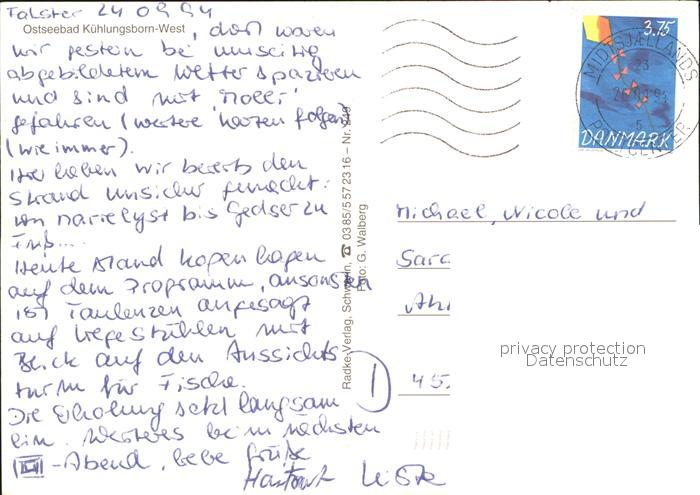 Falster 24 09 94
Ostseebad Kühlungsborn-West
, dort waren
wir gestern bei umseitig
abgebildetem Wetter spazieren
und sind mit "Molli"
gefahren (weitere Karten folgen)
(wie immer).
Hier haben wir bereits den
Strand unsicher gemacht:
von Marielyst bis Gedser zu
Fuß....
Heute stand Kopenhagen
auf dem Programm, ansonsten
ist Faulenzen angesagt
auf Liegestühlen mit
Blick auf den Aussichts
turm für Fische.
Die Erholung setzt langsam
ein. Weiteres beim nächsten
-Abend, liebe Grüße
Hartmut
Radke-Verlag, Schwerin, ☎ 0385/5572316 – Nr.
Foto: G. Walberg
3.75
DANMARK
MIDTSJÆLLANDS
23
POSTCENTER
Michael, Nicole und
Sara
privacy protection
Datenschutz
45